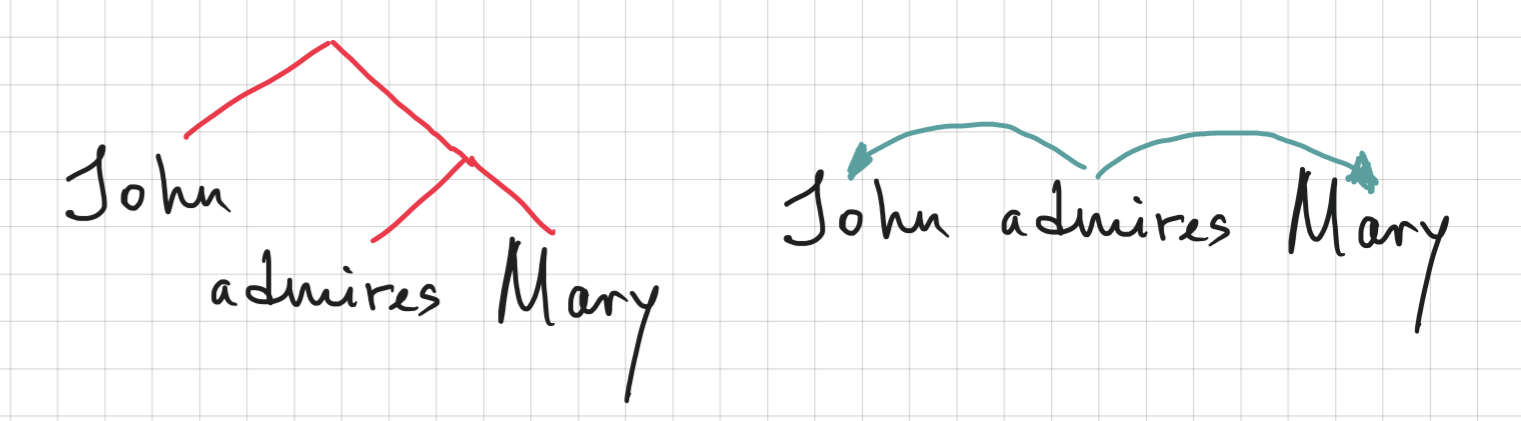 John
admires Mary
John admires Mary